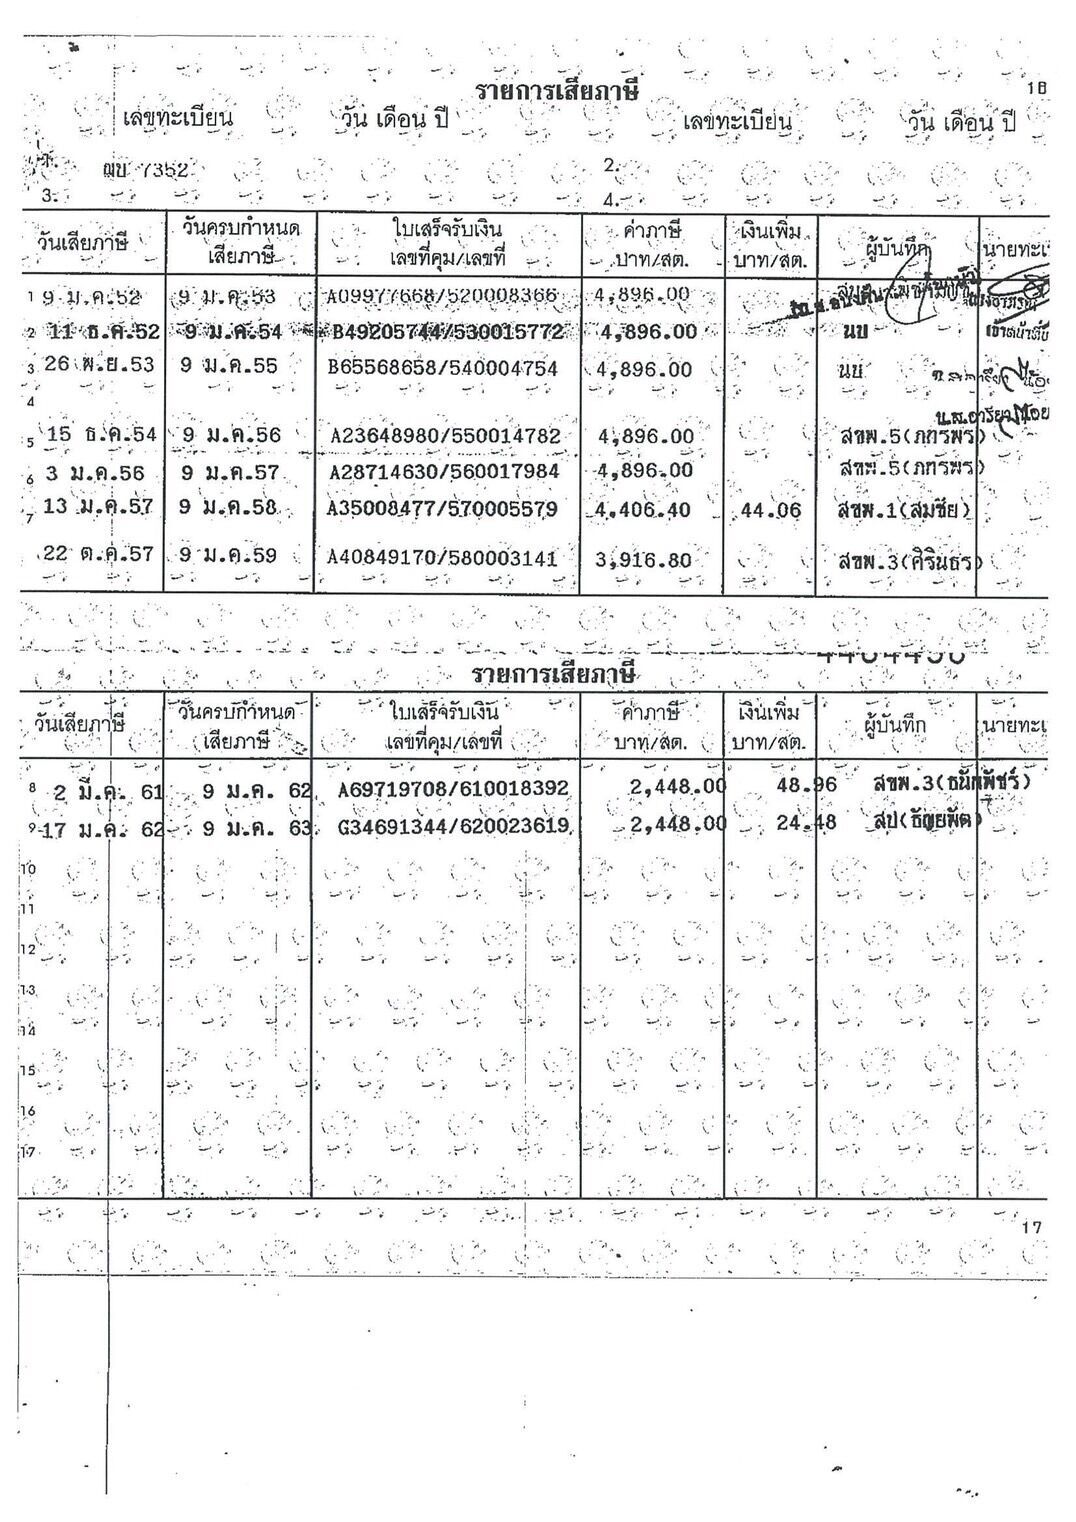 รายการเสียภาษี
16
เลขทะเบียน วัน เดือน ปี เลขทะเบียน วัน เดือน ปี
1. ฌบ 7352 2.
3. 4.
วันเสียภาษี วันครบกำหนดเสียภาษี ใบเสร็จรับเงิน เลขที่คุม/เลขที่ ค่าภาษี บาท/สต. เงินเพิ่ม บาท/สต. ผู้บันทึก นายทะเ
1 9 ม.ค.52 9 ม.ค.53 A09977668/520008366 4,896.00
2 11 ธ.ค.52 9 ม.ค.54 B49205744/530015772 4,896.00 นบ
3 26 พ.ย.53 9 ม.ค.55 B65568658/540004754 4,896.00 นบ
4
5 15 ธ.ค.54 9 ม.ค.56 A23648980/550014782 4,896.00 สขพ.5(ภทรพร)
6 3 ม.ค.56 9 ม.ค.57 A28714630/560017984 4,896.00 สขพ.5(ภทรพร)
7 13 ม.ค.57 9 ม.ค.58 A35008477/570005579 4,406.40 44.06 สขพ.1(สมชัย)
22 ต.ค.57 9 ม.ค.59 A40849170/580003141 3,916.80 สขพ.3(ศิรินธร)
รายการเสียภาษี
วันเสียภาษี วันครบกำหนดเสียภาษี ใบเสร็จรับเงิน เลขที่คุม/เลขที่ ค่าภาษี บาท/สต. เงินเพิ่ม บาท/สต. ผู้บันทึก นายทะเ
8 2 มี.ค. 61 9 ม.ค. 62 A69719708/610018392 2,448.00 48.96 สขพ.3(ธนัทพัชร์)
9 17 ม.ค. 62 9 ม.ค. 63 G34691344/620023619 2,448.00 24.48 สป(ธัญยพัต)
10
11
12
13
14
15
16
17
17